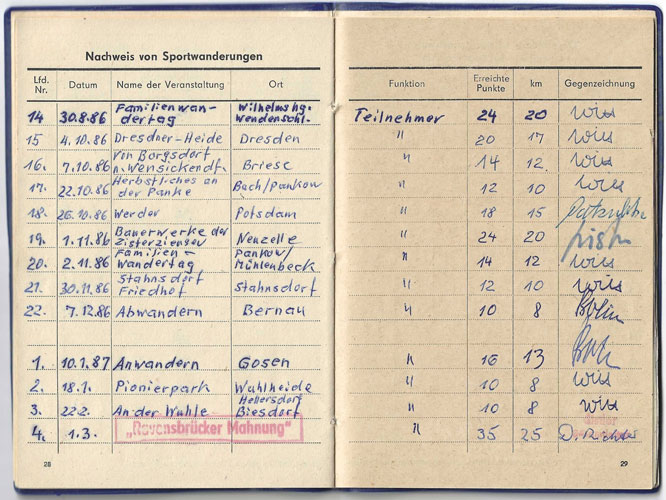 Nachweis von Sportwanderungen
Lfd. Nr. Datum Name der Veranstaltung Ort Funktion Erreichte Punkte km Gegenzeichnung
14 30.8.86 Familienwan- Wilhelmshg. Teilnehmer 24 20
dertag Wendenschl.
15 4.10.86 Dresdner-Heide Dresden " 20 17
16. 7.10.86 Von Borgsdorf Briese " 14 12
n. Wensickendf.
17. 22.10.86 Herbstliches an Buch/Pankow " 12 10
der Panke
18. 26.10.86 Werder Potsdam " 18 15
19. 1.11.86 Bauerwerke der Neuzelle " 24 20
Zisterzienser
20. 2.11.86 Familien- Pankow/ " 14 12
wandertag Mühlenbeck
21. 30.11.86 Stahnsdorf Stahnsdorf " 12 10
Friedhof
22. 7.12.86 Abwandern Bernau " 10 8
1. 10.1.87 Anwandern Gosen " 16 13
2. 18.1. Pionierpark Wuhlheide " 10 8
3. 22.2. An der Wuhle Hellersdorf " 10 8
Biesdorf
4. 1.3. „Ravensbrücker Mahnung" " 35 25 D. Richter
28 29